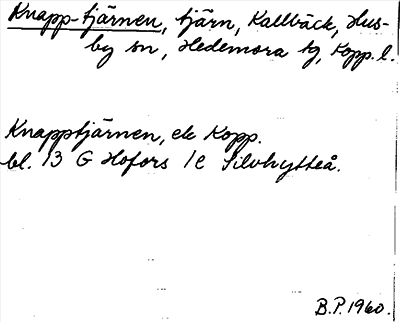 Knapp-tjärnen, tjärn, Kallbäck, Hus-
by sn, Hedemora tg, Kopp. l.
Knapptjärnen, ek Kopp.
bl. 13 G Hofors 1c Silvhytteå.
B.P. 1960.